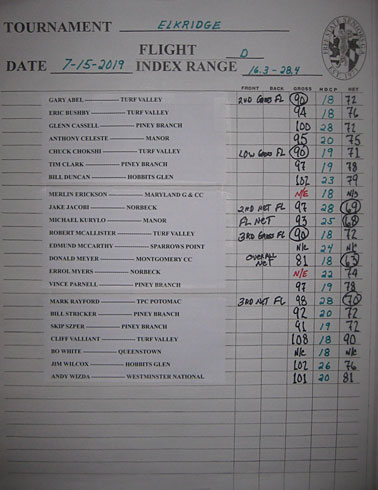 TOURNAMENT ELKRIDGE
FLIGHT D
DATE 7-15-2019 INDEX RANGE 16.3-28.4
FRONT BACK GROSS H.D.C.P. NET
GARY ABEL TURF VALLEY 2ND GROSS FL 90 18 72
ERIC BUSHBY TURF VALLEY 94 18 76
GLENN CASSELL PINEY BRANCH 100 28 72
ANTHONY CELESTE MANOR 95 20 75
CHUCK CHOKSHI TURF VALLEY LOW GROSS FL 90 19 71
TIM CLARK PINEY BRANCH 97 19 78
BILL DUNCAN HOBBITS GLEN 102 23 79
MERLIN ERICKSON MARYLAND G & CC N/E 18
JAKE JACOBI NORBECK 2ND NET FL 97 28 69
MICHAEL KURYLO MANOR FL NET 93 25 68
ROBERT MCALLISTER TURF VALLEY 3RD GROSS FL 90 18 72
EDMUND MCCARTHY SPARROWS POINT N/C 24 N/C
DONALD MEYER MONTGOMERY CC OVERALL NET 81 18 63
ERROL MYERS NORBECK N/E 22
VINCE PARNELL PINEY BRANCH 97 19 78
MARK RAYFORD TPC POTOMAC 3RD NET FL 98 28 70
BILL STRICKER PINEY BRANCH 92 20 72
SKIP SZPER PINEY BRANCH 91 19 72
CLIFF VALLIANT TURF VALLEY 108 18 90
BO WHITE QUEENSTOWN N/C 18 N/C
JIM WILCOX HOBBITS GLEN 102 26 76
ANDY WIZDA WESTMINSTER NATIONAL 101 20 81